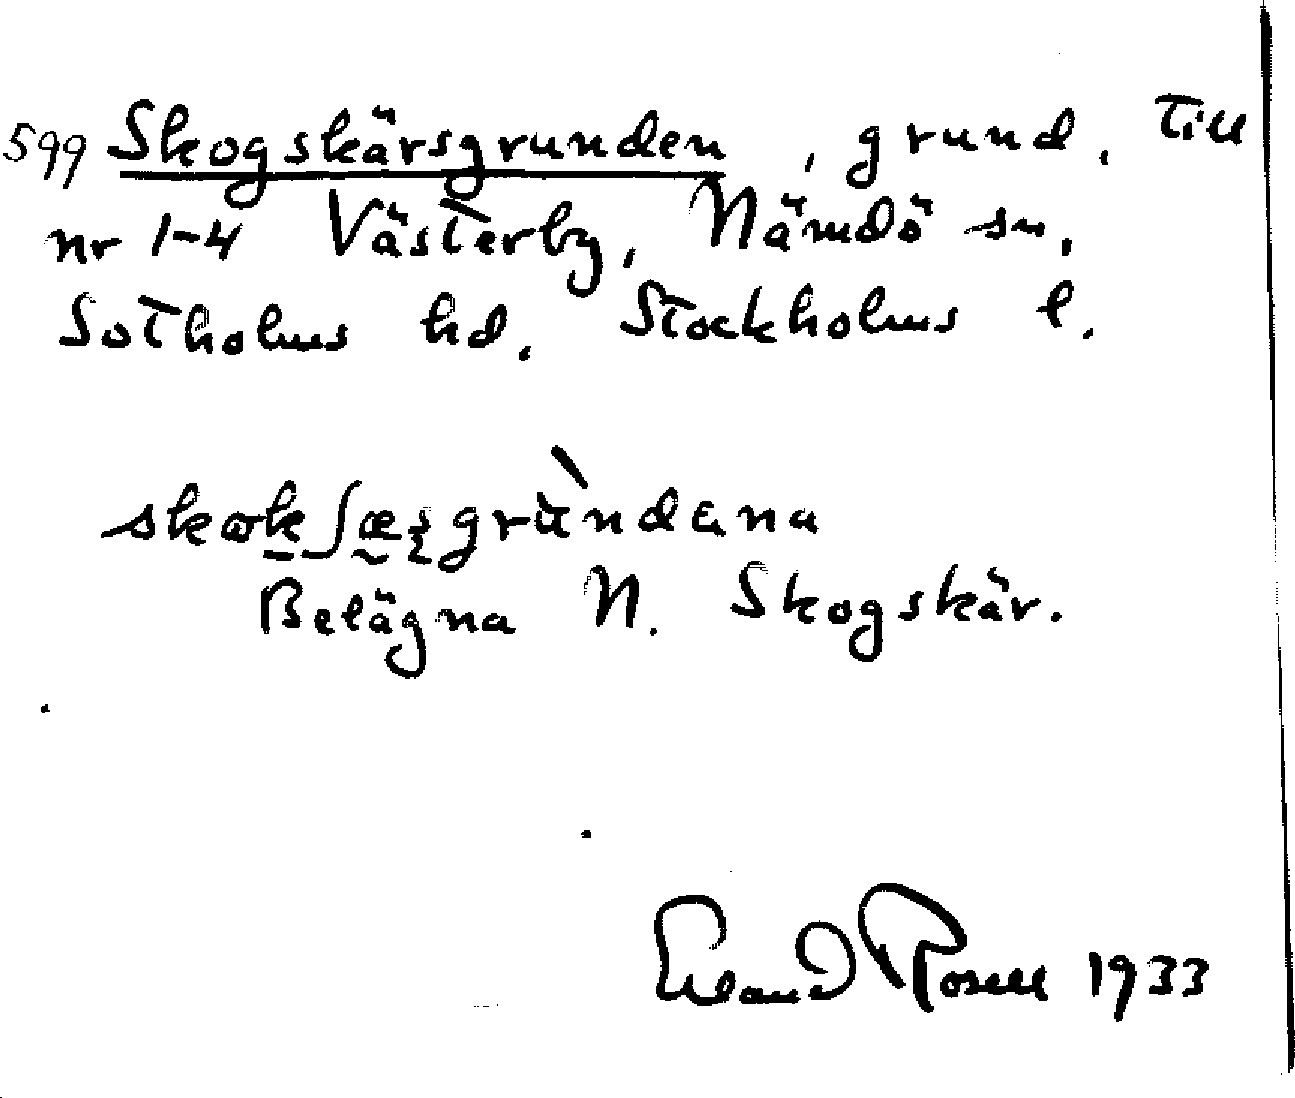 599 Skogskärsgrunden, grund, Till
nr 1-4 Västerby, Nämdö sn,
Sotholms hd. Stockholms l.
skɷkʃæʂgrùndɛna
Belägna N. Skogskär.
Erland Rosell 1933